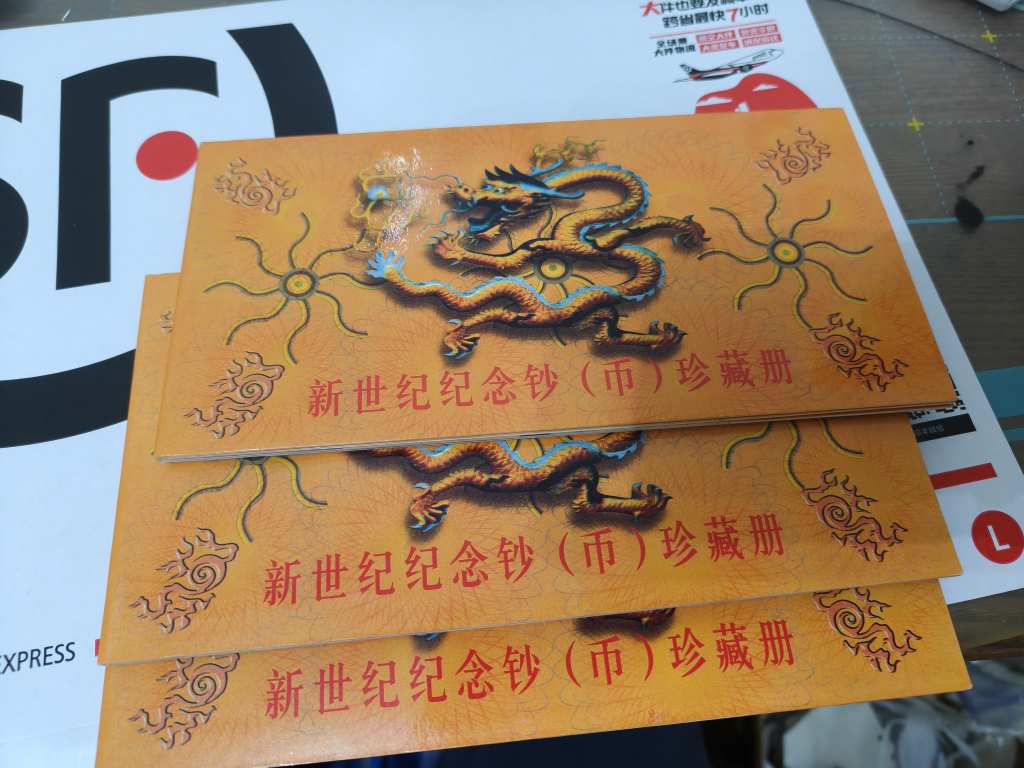 大件也要发顺丰
跨省最快7小时
全场景
大件物流
新世纪纪念钞（币）珍藏册
新世纪纪念钞（币）珍藏册
新世纪纪念钞（币）珍藏册
EXPRESS
L